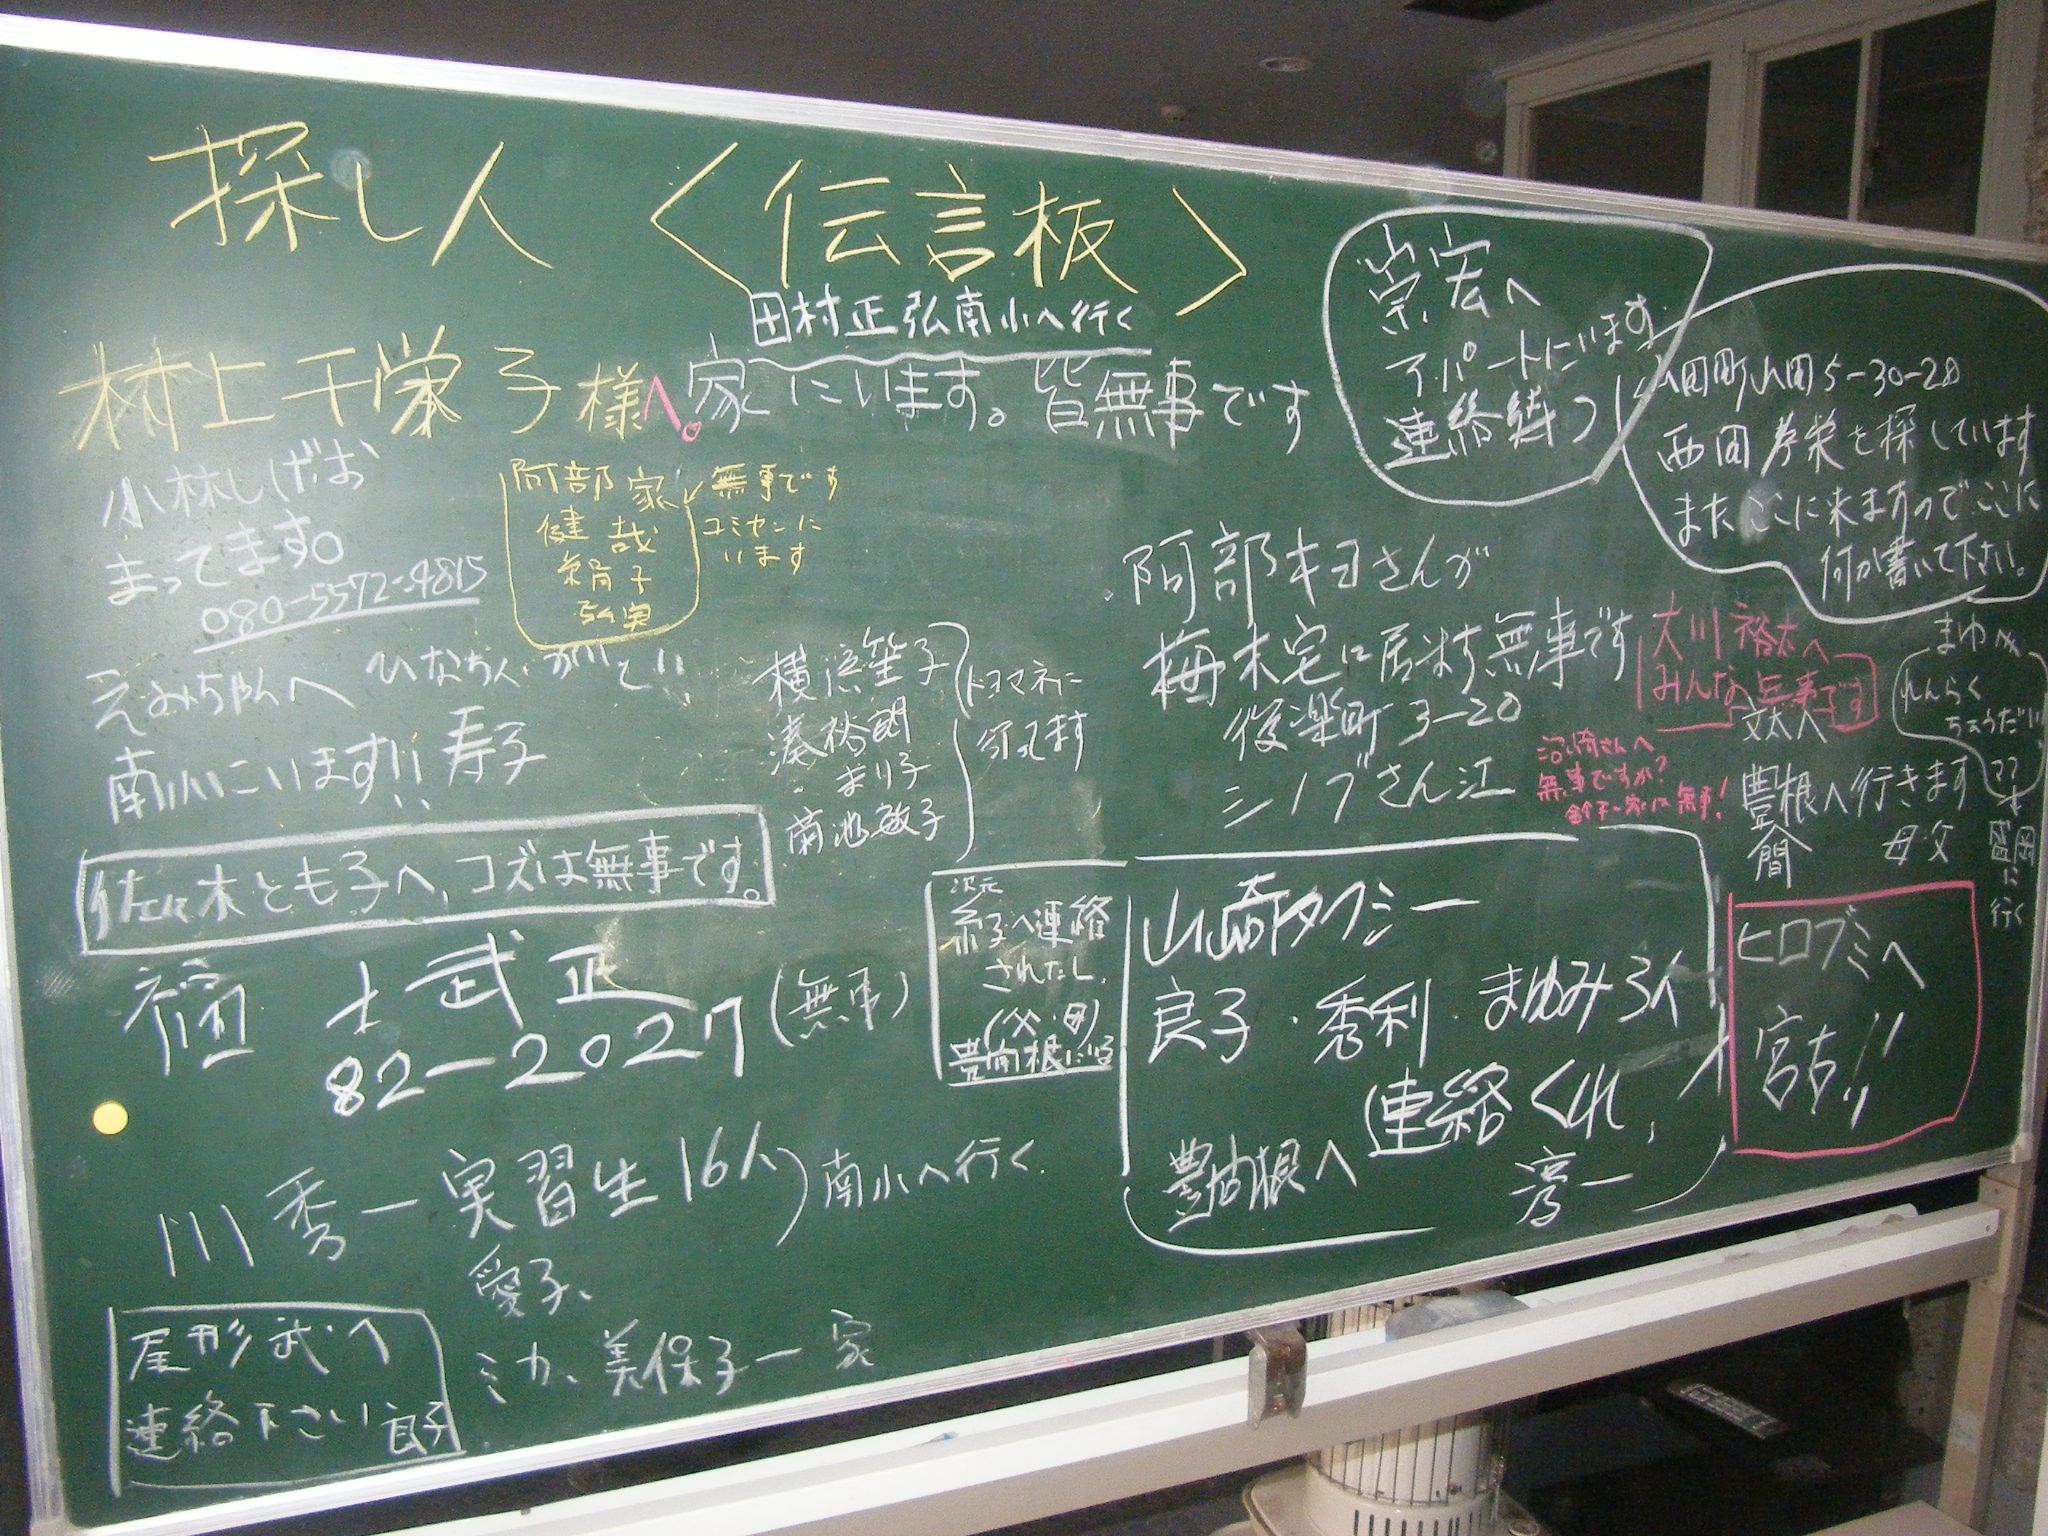 探し人 〈伝言板〉
田村正弘南小へ行く
村上千栄子様へ。家にいます。皆無事です
小林しげお
まってます。
080-5572-4815
阿部家
健哉
絹子
弘実
無事です
コミセンに
います
崇宏へ
アパートにいます
連絡待つ
山田町山田5-30-28
西田 栄を探しています
またここに来ますのでここに
何か書いて下さい。
えみちゃんへ ひなちゃん
南小にいます!! 寿子
横浜笙子
湊裕朗
まり子
菊池敏子
ドコマネに
行ってます
阿部キヨさんが
梅木宅に居ます無事です
後楽町3-20
シノブさん江
大川裕太へ
みんな無事です
沼崎さんへ
無事ですか?
一家は無事!
文太へ
豊間根へ行きます
母・父
まゆみ
れんらく
ちょうだい
ママ
盛岡に行く
佐々木とも子へ、コズは無事です。
福士武正
82-2027 (無事)
次元
糸子へ連絡
されたし、
(父・母)
豊間根にいる
山崎タクシー
良子・秀利・まゆみ3人
連絡くれ、
豊間根へ
淳一
ヒロブミへ
宮古!!
川秀一実習生16人
南小へ行く
愛子、
ミカ、美保子一家
尾形武へ
連絡下さい 良子